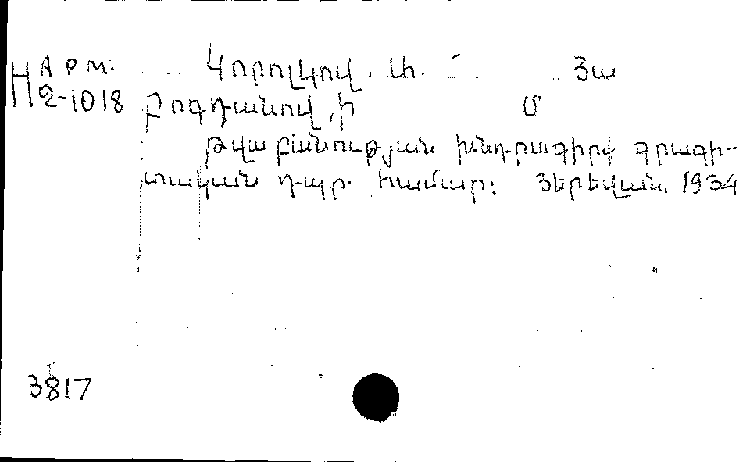 АРМ. Կորոլկով. Ա. Յա
Н2-1018 Բոգդանով, Ի Մ
Թվաբանության խնդրագիրք գրագի-
տական դպր. համար: Յերեվան. 1934
3817